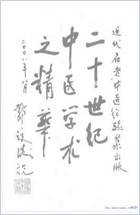 近代名老中医经验集出版
二十世纪
中医学术
之精华
二〇〇一年八月
邓铁涛